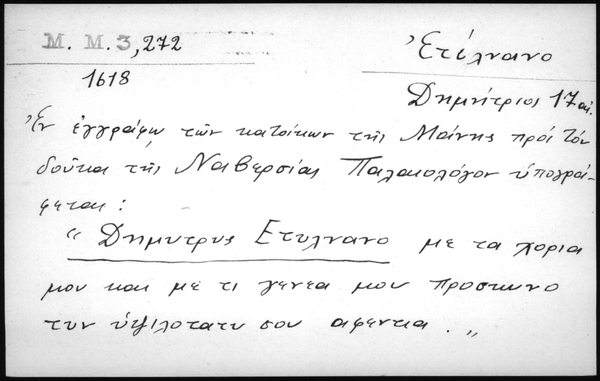 M. M. 3, 272
Ἐτύλνανο
1618
Δημήτριος 17 αἰ.
Ἐν ἐγγράφῳ τῶν κατοίκων τῆς Μάνης πρὸς τὸν
δοῦκα τῆς Ναβερσίας Παλαιολόγον ὑπογρά-
φεται:
" Δημυτρυς Ετυλνανο με τα χορια
μου και με τι γενεα μου προσκυνο
τυν ὑψιλοτατυ σου αφεντια. "